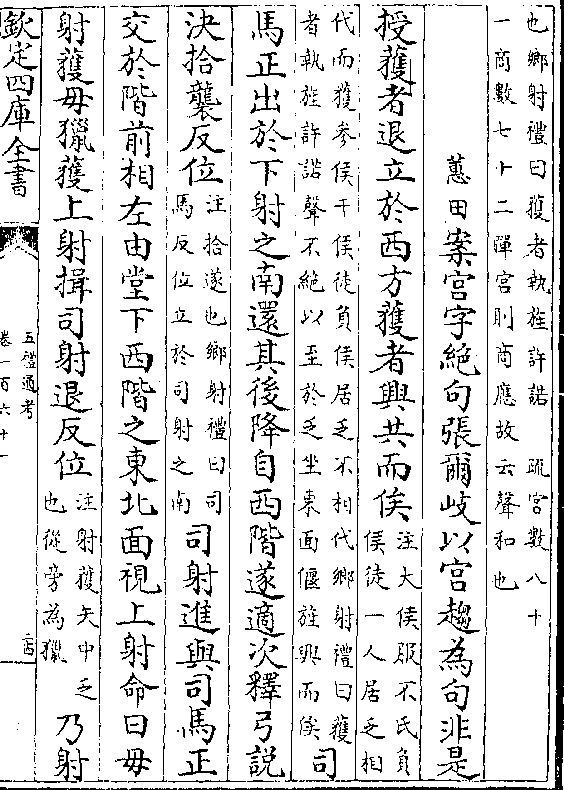 也鄉射禮曰獲者執旌許諾　疏宫數八十
一商數七十二彈宫則商應故云聲和也
蕙田案宫字絶句張爾岐以宫趨為句非是
授獲者退立於西方獲者興共而俟
注大侯服不氏負
侯徒一人居乏相
代而獲參侯干侯徒負侯居乏不相代鄉射禮曰獲
者執旌許諾聲不絶以至於乏坐東面偃旌興而俟
司
馬正出於下射之南還其後降自西階遂適次釋弓説
決拾襲反位
注拾遂也鄉射禮曰司
馬反位立於司射之南
司射進與司馬正
交於階前相左由堂下西階之東北面視上射命曰毋
射獲毋獵獲上射揖司射退反位
注射獲矢中乏
也從旁為獵
乃射
欽定四庫全書
五禮通考
卷一百六十一